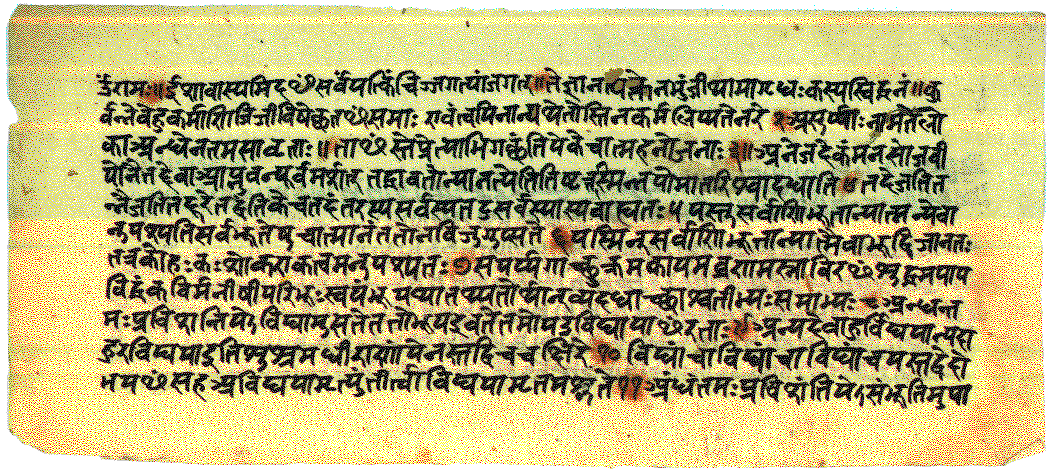 ॐराम॥ईशावास्यमिदꣳसर्वंयत्किंचिज्जगत्यांजगत्॥तेनत्यक्तेनभुंजीथामागृधःकस्यस्विद्धनं॥कु
र्वन्नेवेहकर्माणिजिजीविषेछतꣳसमाः एवंत्वयिनान्यथेतोस्तिनकर्मलिप्यतेनरे २ असुर्य्याःनामतेलो
काअन्धेनतमसावृताः॥ताꣳस्तेप्रेत्याभिगछंतियेकेचात्महनोजनाः ३॥अनेजदेकंमनसोजवी
योनैनद्देवाआप्नुवन्पूर्वमर्शत् तद्धावतोन्यानत्येतितिष्ठत्तस्मिन्नपोमातरिश्वादधाति ४ तदेजतित
न्नैजतितद्दूरेतद्वंतिकेचतदंतरस्यसर्वस्यतदुसर्वस्यास्यबाह्यतः ५ यस्तुसर्वाणिभूतान्यात्मन्येवा
नुपश्यतिसर्वभूतेषुचात्मानंततोनविजुगुप्सते ६ यस्मिन्सर्वाणिभूतान्यात्मैवाभूद्विजानतः
तत्रकोमोहःकःशोकएकत्वमनुपश्यतः ७ सपर्य्यगाच्छुक्रमकायमव्रणमस्नाविरꣳशुद्धमपाप
विद्धंकविर्मनीषीपरिभूःस्वयंभूर्याथातथ्यतोर्थान्व्यदधाच्छाश्वतीभ्यःसमाभ्यः ८ अन्धन्त
मःप्रविशन्तियेऽविद्यामुपासतेततोभूयइवतेतमोयउविद्यायाꣳरताः ९ अन्यदेवाहुर्विद्ययान्यदा
हुरविद्ययाइतिशुश्रुमधीराणांयेनस्तद्विचचक्षिरे १० विद्यांचाविद्यांचाविद्यांचयस्तद्वेदो
भयꣳसहअविद्ययामृत्युंतीर्त्वाविद्ययामृतमश्नुते ११ अंधंतमःप्रविशंतियेऽसंभूतिमुपा